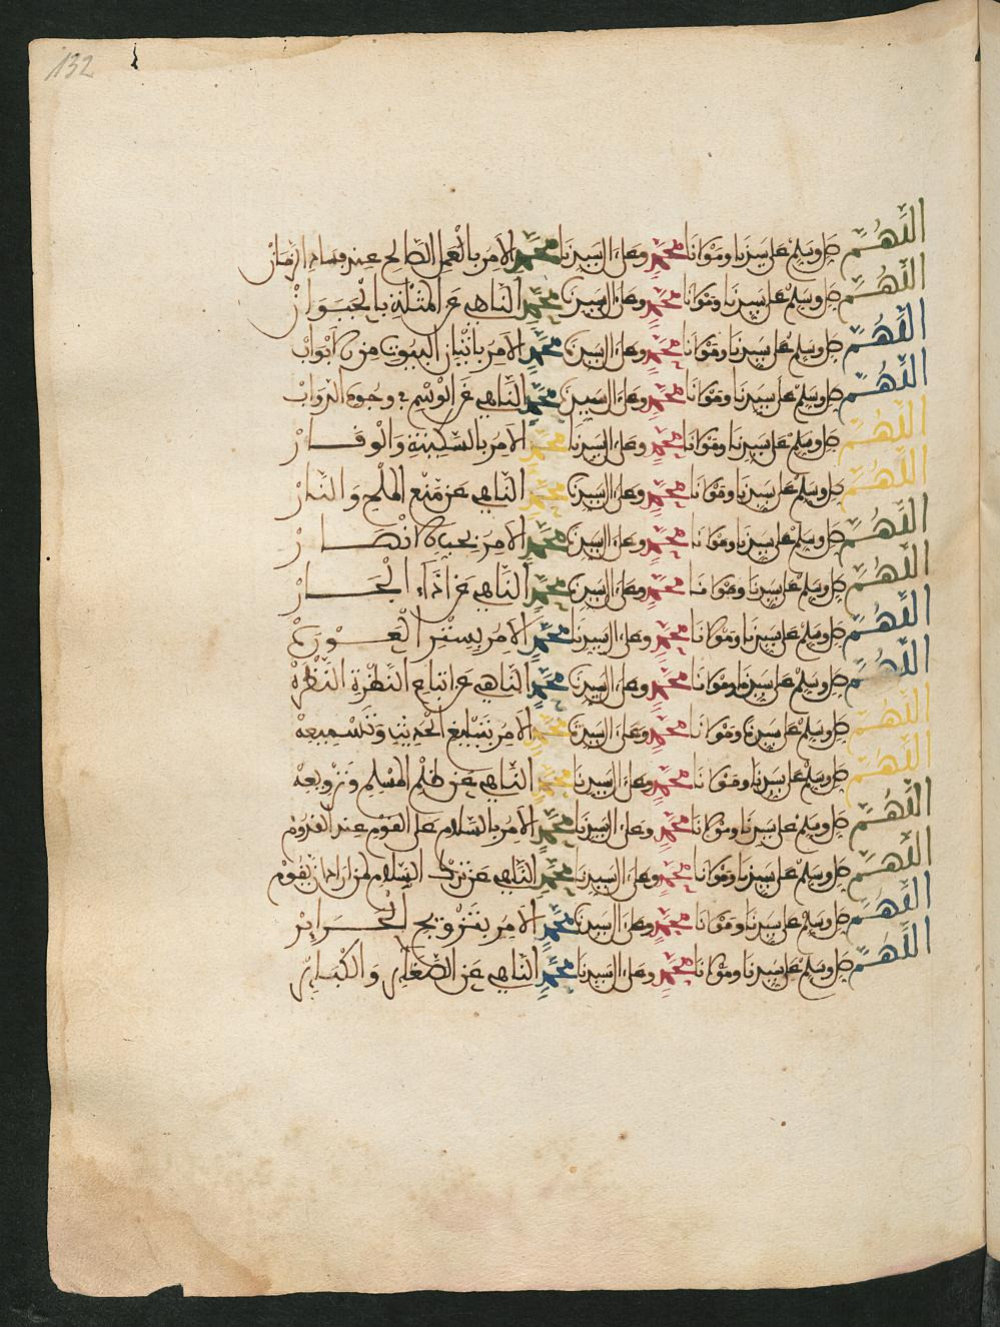 132
اللهم صل وسلم على سيدنا ومولانا محمد وعلى ال سيدنا محمد الامر بالعمل الصالح عند فساد الزمان
اللهم صل وسلم على سيدنا ومولانا محمد وعلى ال سيدنا محمد الناهي عن المثلة بالحيوان
اللهم صل وسلم على سيدنا ومولانا محمد وعلى ال سيدنا محمد الامر باتيان البيوت من الابواب
اللهم صل وسلم على سيدنا ومولانا محمد وعلى ال سيدنا محمد الناهي عن الوسم في وجوه الدواب
اللهم صل وسلم على سيدنا ومولانا محمد وعلى ال سيدنا محمد الامر بالسكينة والوقار
اللهم صل وسلم على سيدنا ومولانا محمد وعلى ال سيدنا محمد الناهي عن منع الملح والنار
اللهم صل وسلم على سيدنا ومولانا محمد وعلى ال سيدنا محمد الامر بحب الانصار
اللهم صل وسلم على سيدنا ومولانا محمد وعلى ال سيدنا محمد الناهي عن اذاء الجار
اللهم صل وسلم على سيدنا ومولانا محمد وعلى ال سيدنا محمد الامر بستر العورة
اللهم صل وسلم على سيدنا ومولانا محمد وعلى ال سيدنا محمد الناهي عن اتباع النظرة النظرة
اللهم صل وسلم على سيدنا ومولانا محمد وعلى ال سيدنا محمد الامر بتبليغ الحديث وتسميعه
اللهم صل وسلم على سيدنا ومولانا محمد وعلى ال سيدنا محمد الناهي عن ظلم المسلم وترويعه
اللهم صل وسلم على سيدنا ومولانا محمد وعلى ال سيدنا محمد الامر بالسلام على القوم عند القدوم
اللهم صل وسلم على سيدنا ومولانا محمد وعلى ال سيدنا محمد الناهي عن ترك السلام لمن اراد ان يقوم
اللهم صل وسلم على سيدنا ومولانا محمد وعلى ال سيدنا محمد الامر بتزويج الحرائر
اللهم صل وسلم على سيدنا ومولانا محمد وعلى ال سيدنا محمد الناهي عن الصغائر والكبائر